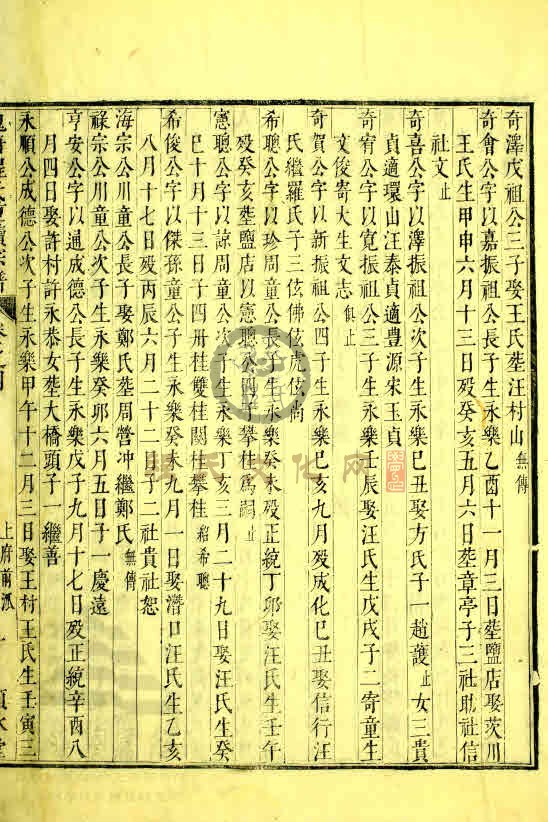 奇澤戊祖公三子娶王氏塟汪村山無傳
奇會公字以嘉振祖公長子生永樂乙酉十一月三日塟鹽店娶茨川
王氏生甲申六月十三日殁癸亥五月六日塟章亭子三社助社信
社文止
奇喜公字以澤振祖公次子生永樂己丑娶方氏子一趙護止女三貴
貞適環山汪泰貞適豊源宋玉貞
奇宥公字以寬振祖公三子生永樂壬辰娶汪氏生戊戌子二寄童生
文俊寄大生文志俱止
奇賀公字以新振祖公四子生永樂己亥九月殁成化己丑娶信行汪
氏繼羅氏子三佛虎
希聰公字以珍周童公長子生永樂癸未殁正統丁卯娶汪氏生壬午
殁癸亥塟鹽店以憲聰公四子攀桂爲嗣止
憲聰公字以諒周童公次子生永樂丁亥三月二十九日娶汪氏生癸
巳十月十三日子四冊桂雙桂閗桂攀桂紹希聰
希俊公字以傑孫童公子生永樂癸未九月一日娶潛口汪氏生乙亥
八月十七日殁丙辰六月二十二日子二社貴社恕
海宗公川童公長子娶鄭氏塟周營冲繼鄭氏無傳
祿宗公川童公次子生永樂癸卯六月五日子一慶遠
亨安公字以通成德公長子生永樂戊子九月十七日殁正統辛酉八
月四日娶許村許永恭女塟大橋頭子一繼善
永順公成德公次子生永樂甲午十二月三日娶王村王氏生壬寅三
上府前派
氏文化网